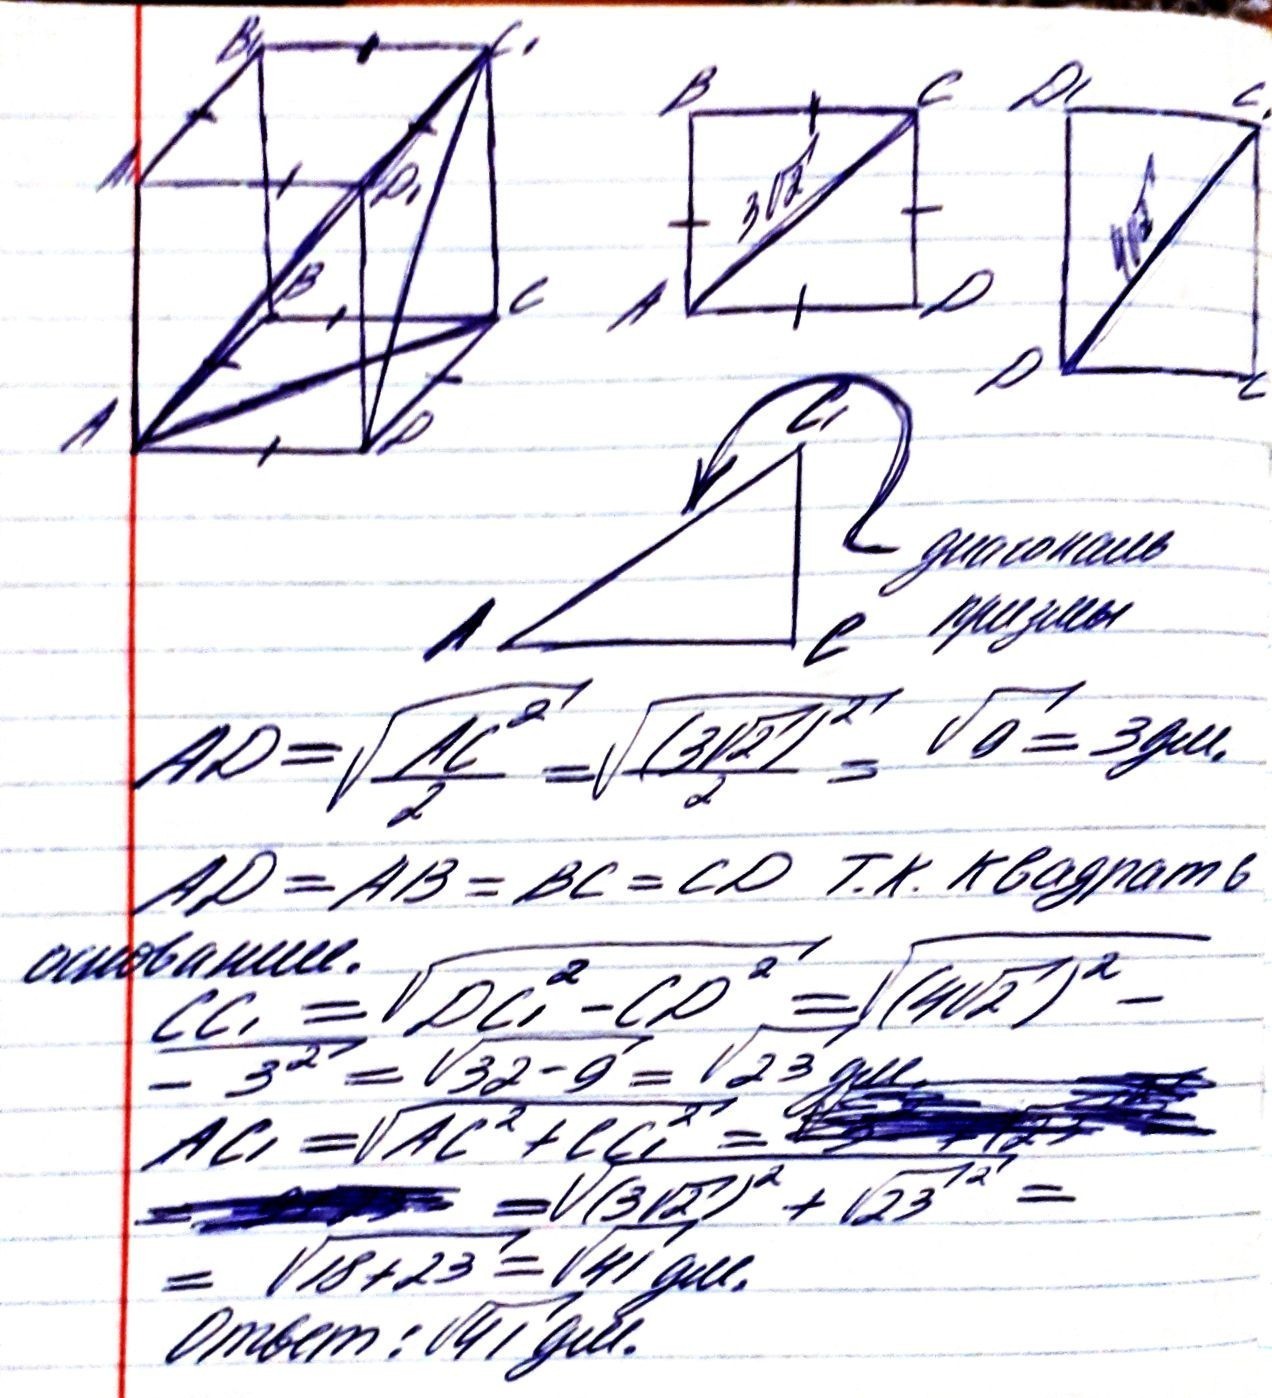 B₁ C₁
A₁ D₁
B C
A D
B C
3√2
A D
D₁ C₁
4√2
D C
C₁
A C
диагональ
призмы
AD = √(AC²/2) = √((3√2)²/2) = √9 = 3 дм.
AD = AB = BC = CD т.к. квадрат в
основании.
CC₁ = √(DC₁² - CD²) = √((4√2)² -
- 3²) = √(32-9) = √23 дм.
AC₁ = √(AC² + CC₁²) =
= √((3√2)² + √23²) =
= √(18+23) = √41 дм.
Ответ: √41 дм.